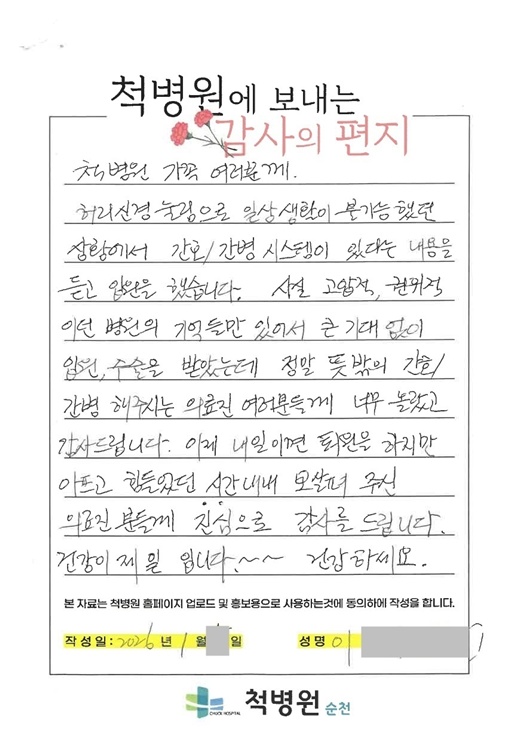 척병원에 보내는
감사의 편지
척병원 가족 여러분께.
허리신경 눌림으로 일상생활이 불가능했던
상황에서 간호/간병 시스템이 있다는 내용을
듣고 입원을 했습니다. 사실 고압적, 권위적
이던 병원의 기억들만 있어서 큰 기대 없이
입원, 수술을 받았는데 정말 뜻밖의 간호/
간병 해주시는 의료진 여러분들께 너무 놀랐고
감사드립니다. 이제 내일이면 퇴원을 하지만
아프고 힘들었던 시간내내 보살펴 주신
의료진분들께 진심으로 감사를 드립니다.
건강이 제일 입니다.~~ 건강하세요.
본 자료는 척병원 홈페이지 업로드 및 홍보용으로 사용하는것에 동의하에 작성을 합니다.
작성일: 2026 년 1 월 일 성명 이
CHUCK HOSPITAL 척병원 순천